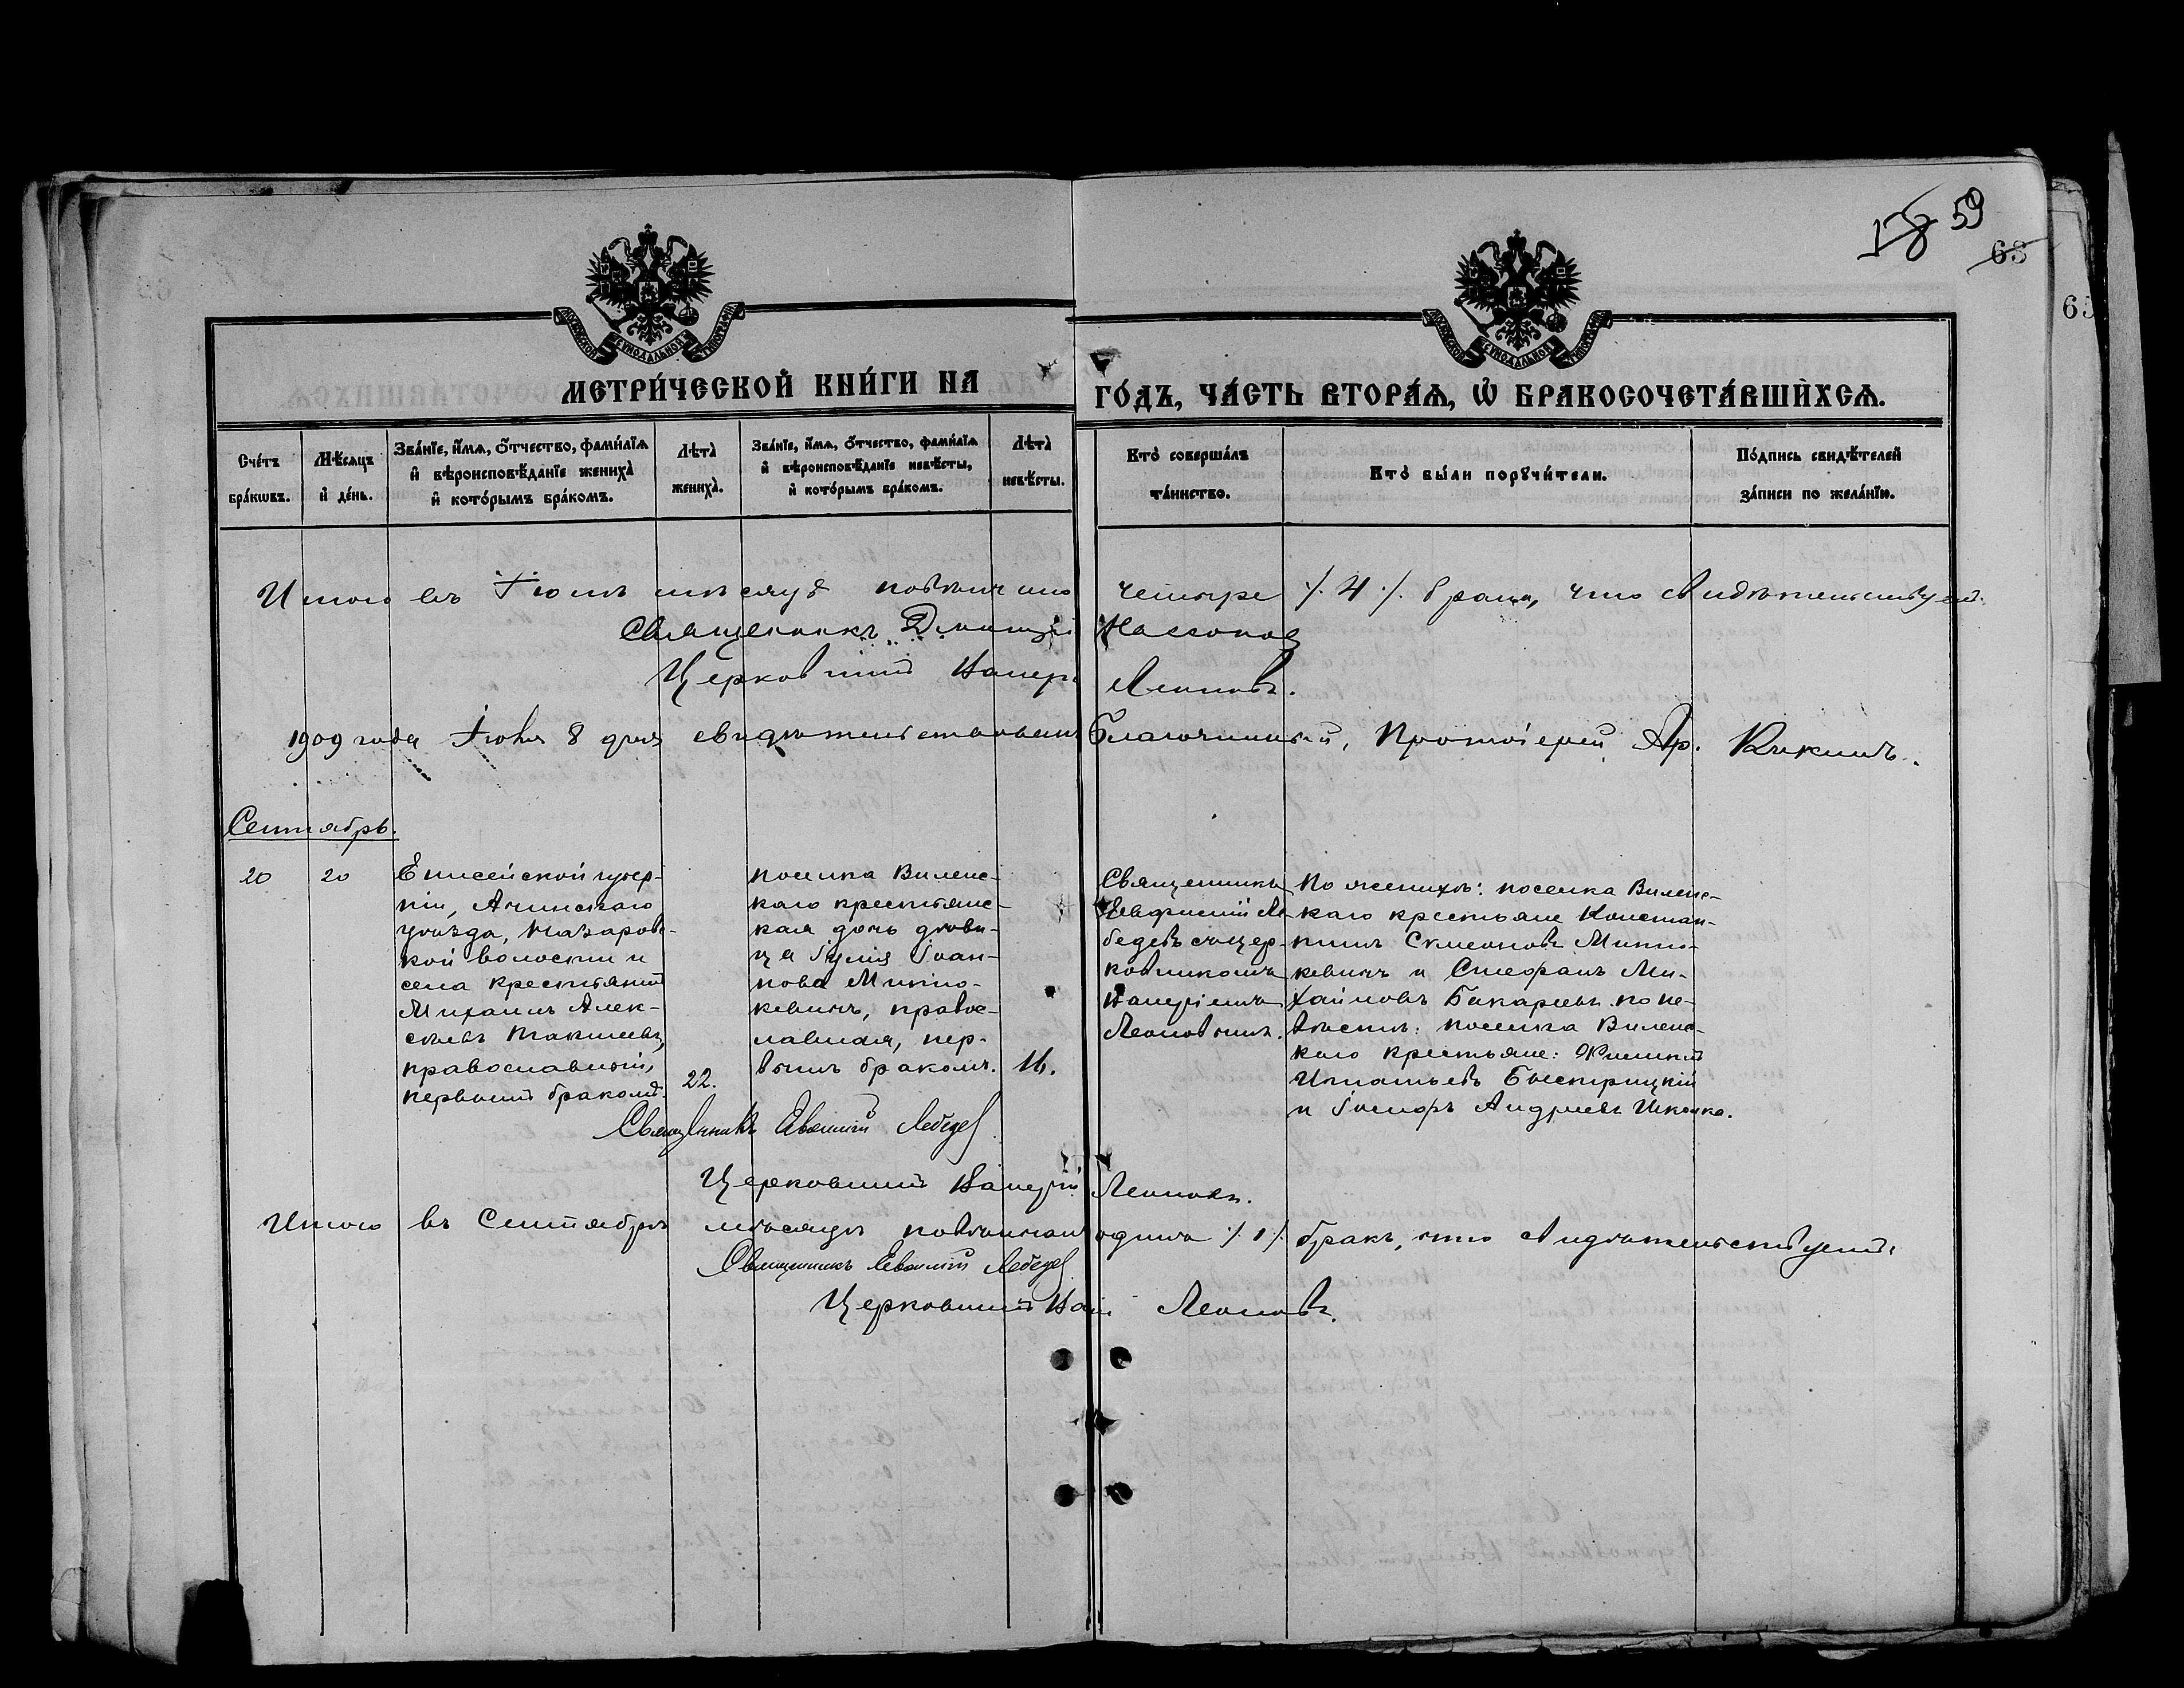 58 59
63
65
МЕТРИ́ЧЕСКОЙ КНИ́ГИ НА ГО́ДЪ, ЧА́СТЬ ВТОРА́Ѧ, Ѡ҆ БРАКОСОЧЕТА́ВШИХСѦ.
Сче́тъ бра́кѡвъ.
Мѣ́сѧцъ и҆ де́нь.
Зва́нїе, и҆́мѧ, ѻ҆́тчество, фами́лїѧ
и҆ вѣроисповѣ́данїе жениха̀
и҆ кото́рымъ бра́комъ.
Лѣта̀ жениха̀.
Зва́нїе, и҆́мѧ, ѻ҆́тчество, фами́лїѧ
и҆ вѣроисповѣ́данїе невѣ́сты,
и҆ кото́рымъ бра́комъ.
Лѣта̀ невѣ́сты.
Кто̀ соверша́лъ
та́инство.
Кто̀ бы́ли порꙋчи́тели.
По́дпись свидѣ́телей
за́писи по жела́нїю.
Итого въ Іюнѣ мѣсяцѣ повѣнчано четыре /. 4 ./. брака, что свидѣтельствуемъ.
Священникъ Димитрій
Церковникъ Валерій Леоновъ.
1909 года Іюня 8 дня свидѣтельствовалъ Благочинный, Протоіерей Ар.
Сентябрь.
20
20
Енисейской губер-
ніи, Ачинскаго
уѣзда, Назаров-
кой волости и
села крестьянинъ
Михаилъ Алек-
сѣевъ
православный,
первымъ бракомъ.
22.
поселка Виленс-
каго крестьянс-
кая дочь дѣви-
ца Іулія Іоан-
нова Митю-
кевичъ, правос-
лавная, пер-
вымъ бракомъ.
16.
Священникъ
Евфимій Ле-
бедевъ съ цер-
ковникомъ
Валеріемъ
Леоновымъ.
По женихѣ: поселка Виленс-
каго крестьяне Констан-
тинъ Симеоновъ Митю-
кевичъ и Стефанъ Ми-
хайловъ Бакаревъ. по не-
вѣстѣ: поселка Виленс-
каго крестьяне:
Игнатьевъ Быстрицкій
и Іосифъ Андреевъ
Священникъ Евфимій Лебедев
Церковникъ Валерій Леоновъ.
Итого въ Сентябрѣ мѣсяцѣ повѣнчанъ одинъ /. 1 /. бракъ, что свидѣтельствуемъ.
Священникъ Евфимій Лебедев
Церковникъ Вал Леоновъ.